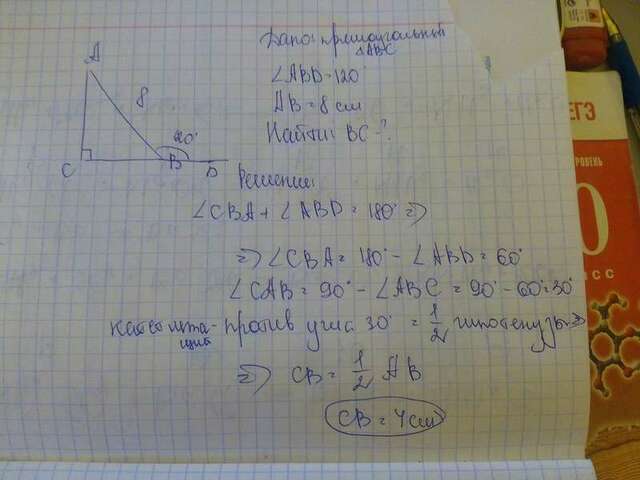 Дано: прямоугольный
△ABC
∠ABD = 120°
AB = 8 см
Найти: BC - ?
A
8
120°
C
B
D
Решение:
∠CBA + ∠ABD = 180° ⇒
⇒ ∠CBA = 180° - ∠ABD = 60°
∠CAB = 90° - ∠ABC = 90° - 60° = 30°
катет лежащий против угла 30° = 1/2 гипотенузы ⇒
⇒ CB = 1/2 AB
CB = 4 см
ЕГЭ
0